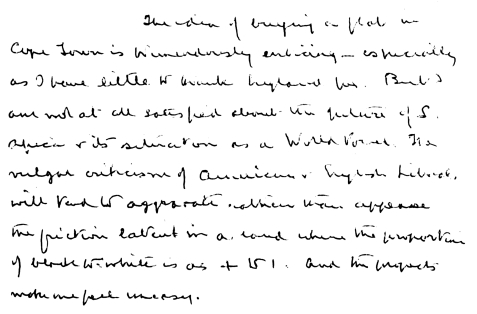 The idea of buying a flat in
Cape Town is tremendously enticing – especially
as I have little to thank England for. But I
am not at all satisfied about the future of S.
Africa & its situation as a World Power. The
vulgar criticism of American & English Liberals
will tend to aggravate rather than appease
the friction latent in a land where the proportion
of black to white is as 4 to 1. And the prospects
make me feel uneasy.